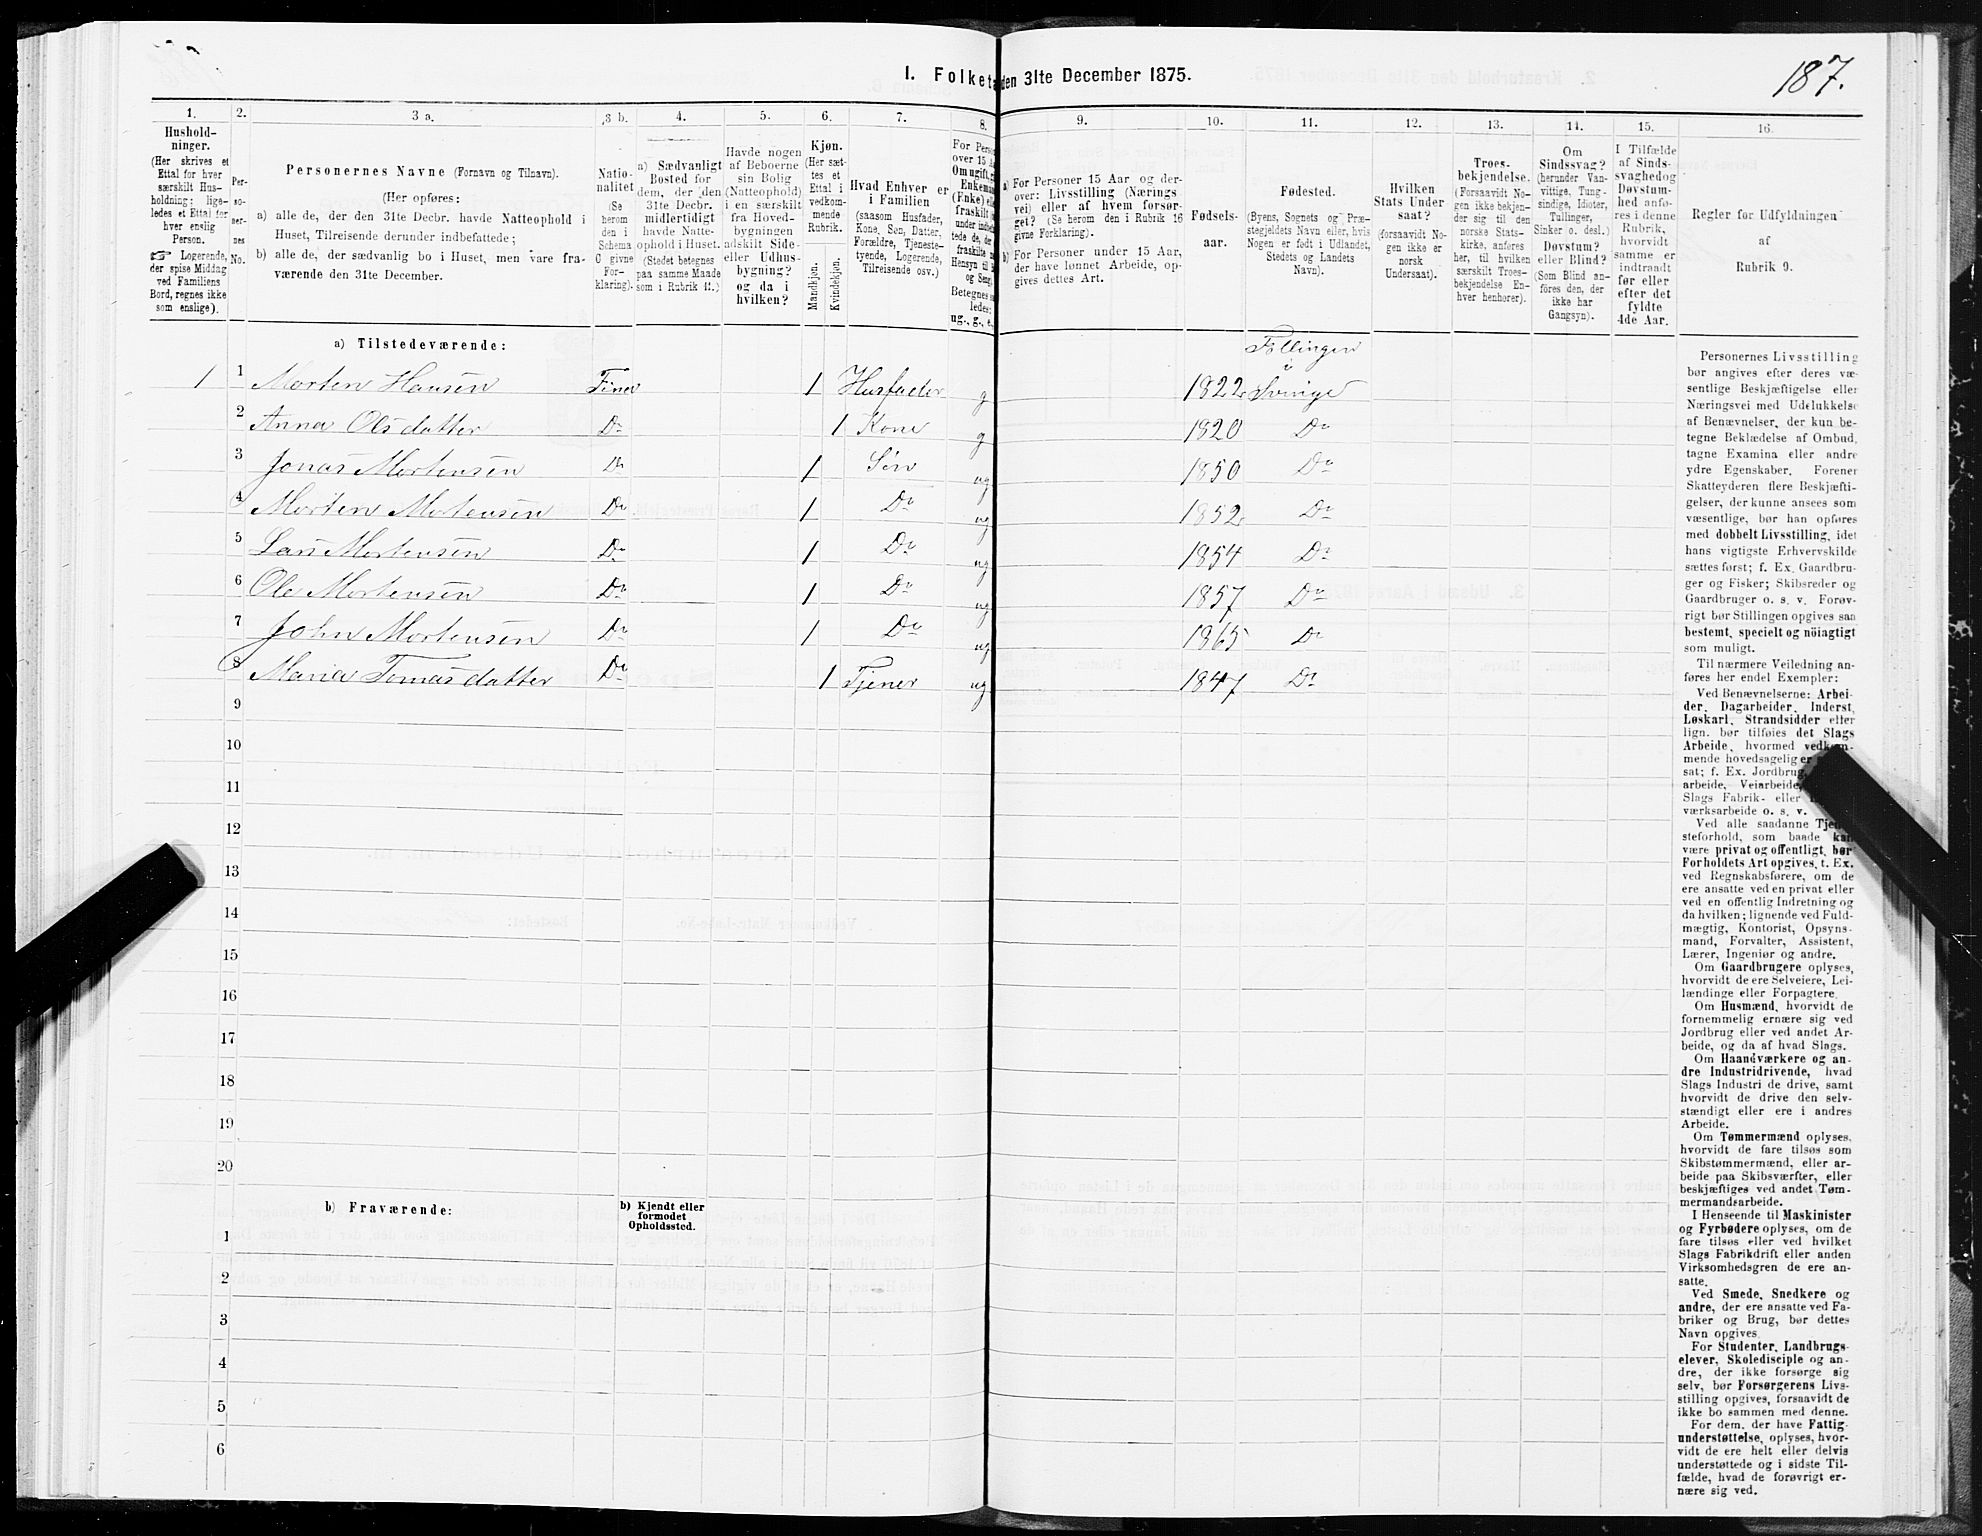 187.
I. Folketæ den 31te December 1875.
1. 2. 3 a. 3 b. 4. 5. 6. 7. 8. 9. 10. 11. 12. 13. 14. 15. 16.
Hushold-
ninger.
(Her skrives et
Ettal for hver
særskilt Hus-
holdning; lige-
ledes et Ettal for
hver enslig
Person.
☞ Logerende,
der spise Middag
ved Familiens
Bord, regnes ikke
som enslige).
Per-
so-
ner-
nes
No.
Personernes Navne (Fornavn og Tilnavn).
(Her opføres:
a) alle de, der den 31te Decbr. havde Natteophold i
Huset, Tilreisende derunder indbefattede;
b) alle de, der sædvanlig bo i Huset, men vare fra-
værende den 31te December.
Natio-
nalitet
(Se
herom
den i
Schema
C givne
For-
klaring).
a) Sædvanligt
Bosted for
dem, der den
31te Decbr.
midlertidigt
havde Natte-
ophold i Huset.
(Stedet betegnes
paa samme Maade
som i Rubrik 11.)
Havde nogen
af Beboerne
sin Bolig
(Natteophold)
i en særskilt
fra Hoved-
bygningen
adskilt Side-
eller Udhus-
bygning?
og da i
hvilken?
Kjøn.
(Her sæt-
tes et
Ettal i
vedkom-
mende
Rubrik.
Mandkjøn.
Kvindekjøn.
Hvad Enhver er
i Familien
(saasom Husfader,
Kone, Søn, Datter,
Forældre, Tjeneste-
tyende, Logerende,
Tilreisende osv.)
For Perso
over 15 A
Om ugift, g
Enkeman
(Enke) ell
fraskilt
under indbe
tede de, d
fraskilte
Hensyn til
og Seng
Betegnes s
ledes:
ug., g., e.,
a) For Personer 15 Aar og der-
over: Livsstilling (Nærings-
vei) eller af hvem forsør-
get? (Se herom den i Rubrik 16
givne Forklaring).
b) For Personer under 15 Aar,
der have lønnet Arbeide, op-
gives dettes Art.
Fødsels-
aar.
Fødested.
(Byens, Sognets og Præ-
stegjeldets Navn eller, hvis
Nogen er født i Udlandet,
Stedets og Landets
Navn).
Hvilken
Stats Under
saat?
(forsaavidt No-
gen ikke er
norsk
Undersaat).
Troes-
bekjendelse.
(Forsaavidt No-
gen ikke bekjen-
der sig til den
norske Stats-
kirke, anføres
her, til hvilken
særskilt Troes-
bekjendelse En-
hver henhører).
Om
Sindssvag?
(herunder Van-
vittige, Tung-
sindige, Idioter,
Tullinger,
Sinker o. desl.)
Døvstum?
eller Blind?
(Som Blind an-
føres den, der
ikke har
Gangsyn).
I Tilfælde
af Sinds-
svaghed og
Døvstum-
hed anfø-
res i denne
Rubrik,
hvorvidt
samme er
indtraadt
før eller
efter det
fyldte
4de Aar.
Regler for Udfyldningen
af
Rubrik 9.
a) Tilstedeværende:
1 1 Morten Hansen Finn 1 Husfader g 1822 Føllingen i Sverige
2 Anna Olsdatter Do 1 Kone g 1820 Do
3 Jonas Mortensen Do 1 Søn ug 1850 Do
4 Morten Mortensen Do 1 Do ug 1852 Do
5 Lars Mortensen Do 1 Do ug 1854 Do
6 Ole Mortensen Do 1 Do ug 1857 Do
7 John Mortensen Do 1 Do ug 1865 Do
8 Maria Tomasdatter Do 1 Tjener ug 1847 Do
9
10
11
12
13
14
15
16
17
18
19
20
b) Fraværende:
b) Kjendt eller
formodet
Opholdssted.
1
2
3
4
5
6
Personernes Livsstilling
bør angives efter deres væ-
sentlige Beskjæftigelse eller
Næringsvei med Udelukkelse
af Benævnelser, der kun be-
tegne Beklædelse af Ombud,
tagne Examina eller andre
ydre Egenskaber. Forener
Skatteyderen flere Beskjæfti-
gelser, der kunne ansees som
væsentlige, bør han opføres
med dobbelt Livsstilling, idet
hans vigtigste Erhvervskilde
sættes først; f. Ex. Gaardbru-
ger og Fisker; Skibsreder og
Gaardbruger o. s. v. Forøv-
rigt bør Stillingen opgives saa
bestemt, specielt og nöiagtigt
som muligt.
Til nærmere Veiledning an-
føres her endel Exempler:
Ved Benævnelserne: Arbei-
der, Dagarbeider, Inderst,
Løskarl, Strandsidder eller
lign. bør tilføies det Slags
Arbeide, hvormed vedkom-
mende hovedsagelig er
sat; f. Ex. Jordbrug,
arbeide, Veiarbeide,
Slags Fabrik- eller
værksarbeide o. s. v.
Ved alle saadanne Tjene-
steforhold, som baade kan
være privat og offentligt, bør
Forholdets Art opgives, t. Ex.
ved Regnskabsførere, om de
ere ansatte ved en privat eller
ved en offentlig Indretning og
da hvilken; lignende ved Fuld-
mægtig, Kontorist, Opsyns-
mand, Forvalter, Assistent,
Lærer, Ingeniør og andre.
Om Gaardbrugere oplyses,
hvorvidt de ere Selveiere, Lei-
lændinge eller Forpagtere.
Om Husmænd, hvorvidt de
fornemmelig ernære sig ved
Jordbrug eller ved andet Ar-
beide, og da af hvad Slags.
Om Haandværkere og an-
dre Industridrivende, hvad
Slags Industri de drive, samt
hvorvidt de drive den selv-
stændigt eller ere i andres
Arbeide.
Om Tømmermænd oplyses,
hvorvidt de fare tilsøs som
Skibstømmermænd, eller ar-
beide paa Skibsværfter, eller
beskjæftiges ved andet Tøm-
mermandsarbeide.
I Henseende til Maskinister
og Fyrbødere oplyses, om de
fare tilsøs eller ved hvilket
Slags Fabrikdrift eller anden
Virksomhedsgren de ere an-
satte.
Ved Smede, Snedkere og
andre, der ere ansatte ved Fa-
briker og Brug, bør dettes
Navn opgives.
For Studenter, Landbrugs-
elever, Skoledisciple og an-
dre, der ikke forsørge sig
selv, bør Forsørgerens Livs-
stilling opgives, forsaavidt de
ikke bo sammen med denne.
For dem, der have Fattig-
understøttelse, oplyses, hvor-
vidt de ere helt eller delvis
understøttede og i sidste Til-
fælde, hvad de forøvrigt er-
nære sig ved.